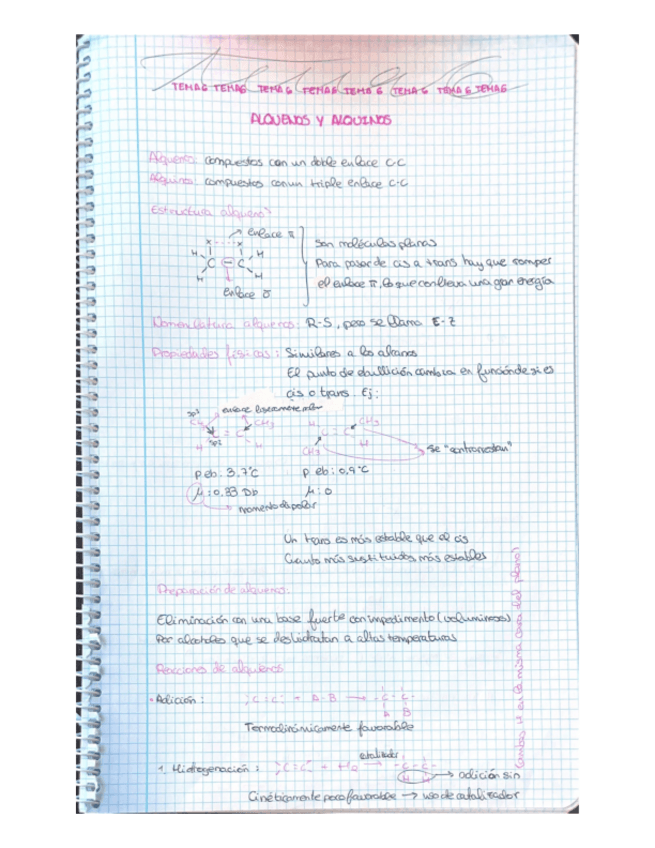 TEMA 6
TEMA 6 TEMA 6 TEMA 6 TEMA 6 TEMA 6 TEMA 6 TEMA 6 TEMA 6
ALQUENOS Y ALQUINOS
Alqueno: compuestos con un doble enlace C-C
Alquino: compuestos con un triple enlace C-C
Estructura alqueno:
enlace π
H H
C = C
H H
enlace σ
Son moléculas planas
Para pasar de cis a trans hay que romper
el enlace π, lo que conlleva una gran energía
Nomenclatura alquenos: R-S, pero se llama E-Z
Propiedades físicas: Similares a los alcanos
El punto de ebullición cambia en función de si es
cis o trans Ej:
sp³ enlace ligeramente
CH₃ CH₃ H CH₃
C = C C = C
H sp² H CH₃ H
se "contrarrestan"
p eb: 3,7°C p eb: 0,9°C
μ: 0,33 Db μ: 0
momento dipolar
Un trans es más estable que el cis
Cuanto más sustituidos más estables
Preparación de alquenos:
Eliminación con una base fuerte con impedimento (voluminosos)
Por alcoholes que se deshidratan a altas temperaturas
Reacciones de alquenos
- Adición: C=C + A-B → -C-C-
A B
Termodinámicamente favorable
1. Hidrogenación: C=C + H₂ → -C-C-
catalizador
H H
→ adición sin
(ambos H en la misma cara del plano)
Cinéticamente poco favorable → uso de catalizador